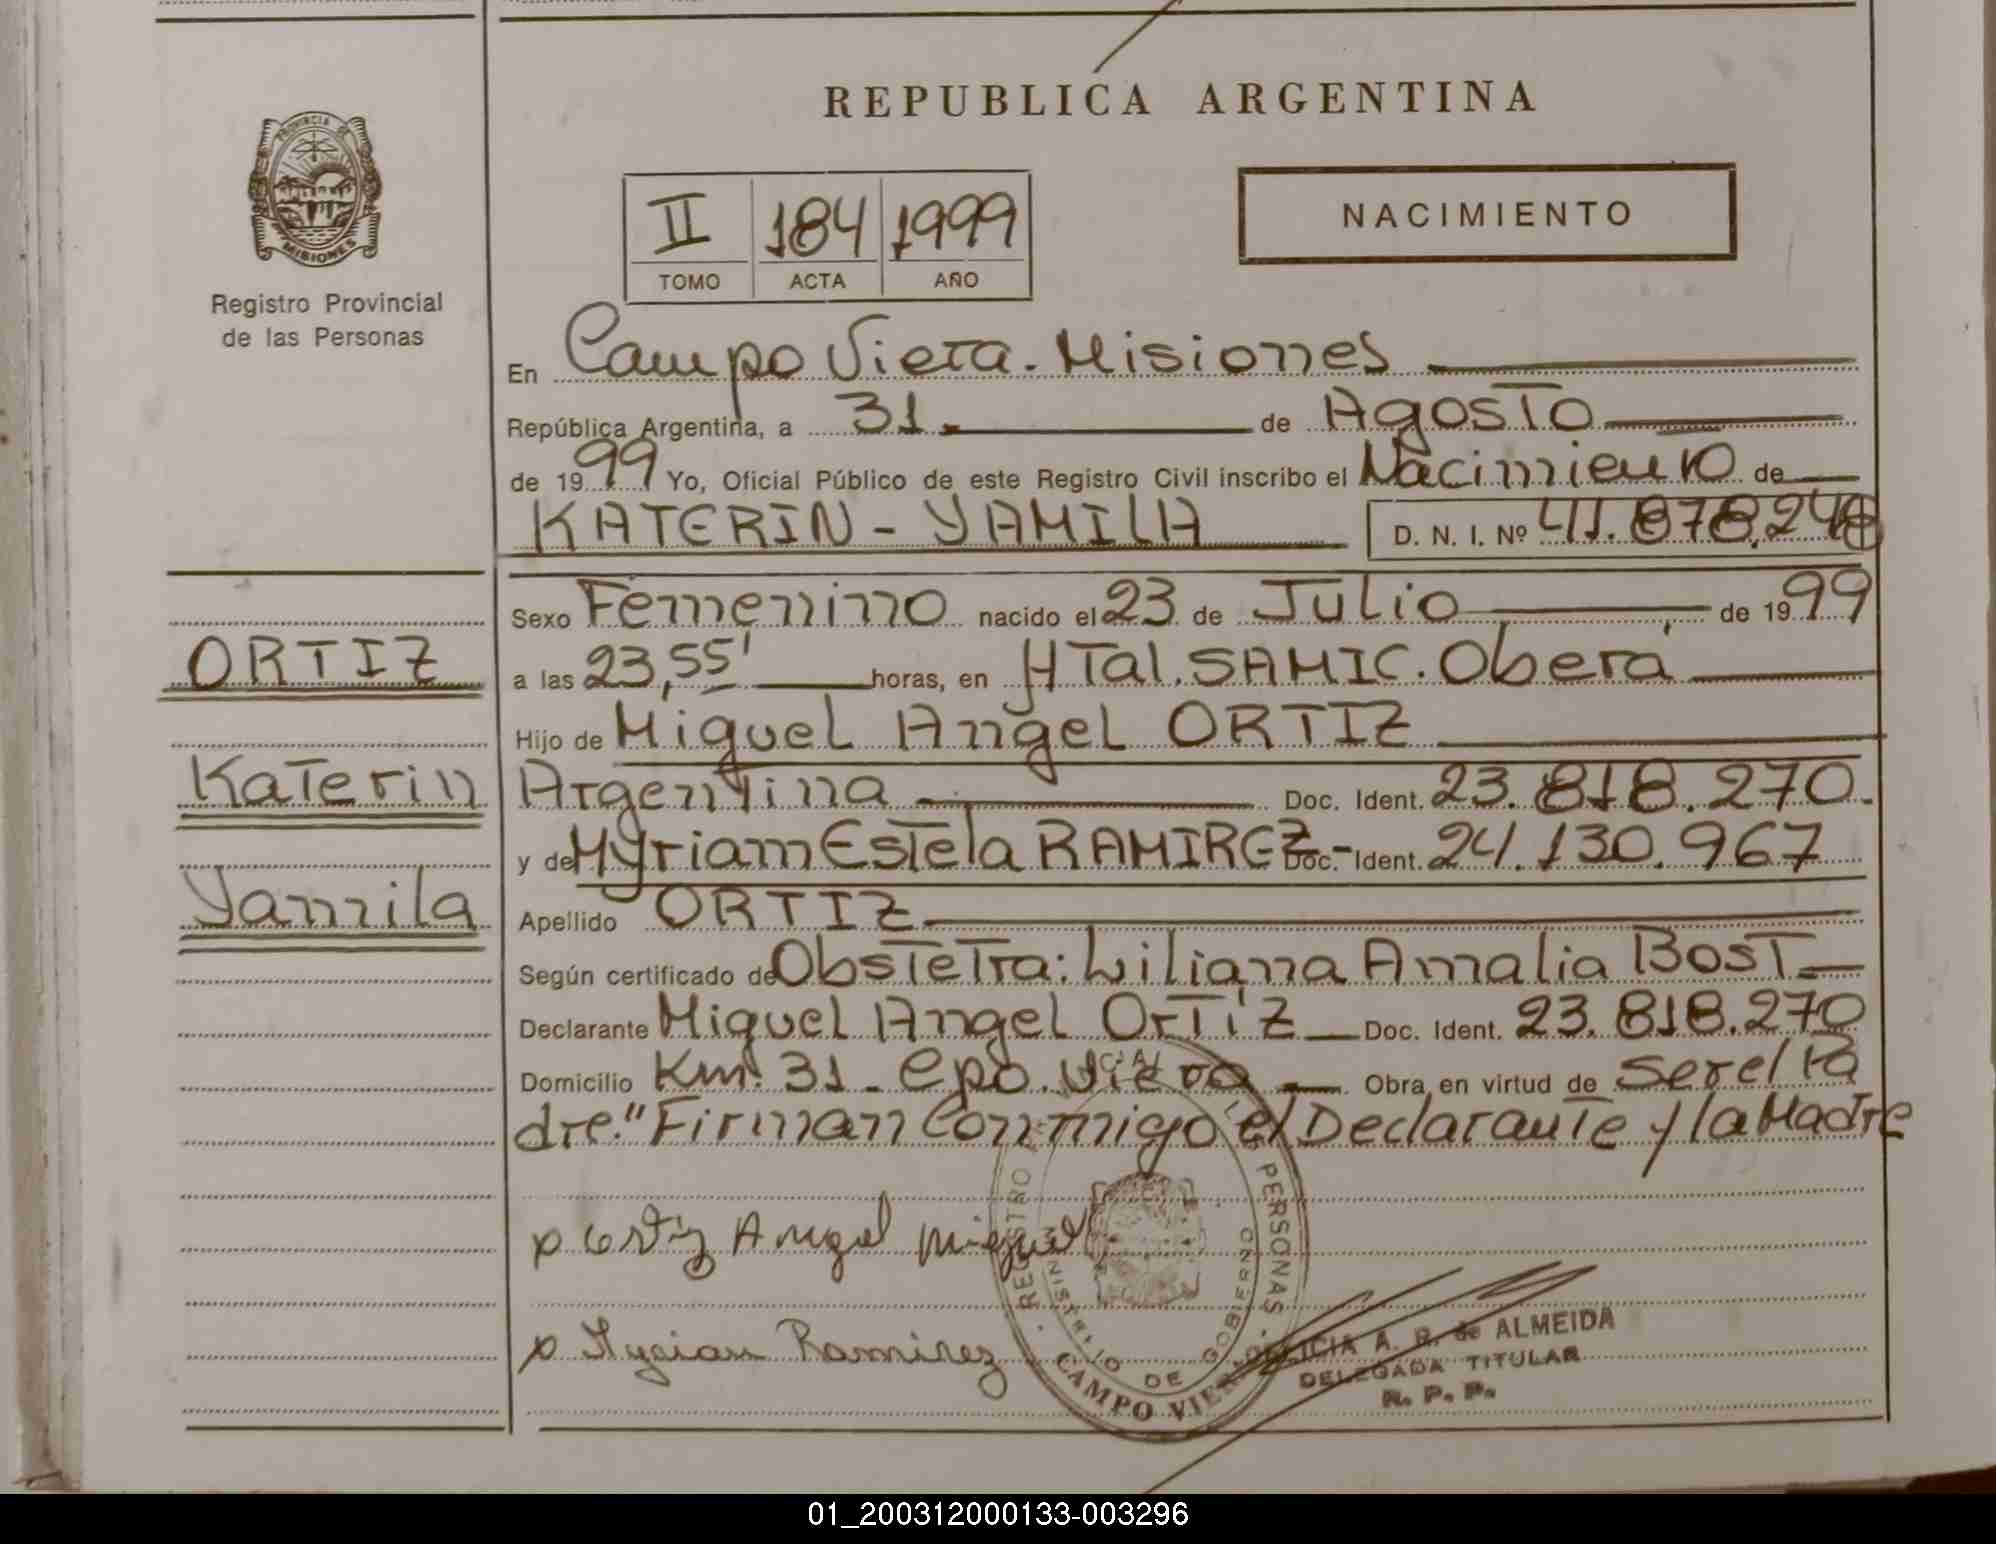 REPUBLICA ARGENTINA
PROVINCIA DE
MISIONES
Registro Provincial
de las Personas
II 184 1999
TOMO ACTA AÑO
NACIMIENTO
En Campo Viera. Misiones
República Argentina, a 31. de Agosto
de 1999 Yo, Oficial Público de este Registro Civil inscribo el Nacimiento de
KATERIN - YAMILA D. N. I. Nº
Sexo Femenino nacido el 23 de Julio de 1999
ORTIZ
a las 23,55' horas, en HTal. SAMIC. Oberá
Hijo de Miguel Angel ORTIZ
Katerin
Argentina Doc. Ident. 23.818.270.
y de Myriam Estela RAMIREZ - Doc. Ident. 24.130.967
Yamila
Apellido ORTIZ
Según certificado de Obstetra: Liliana Amalia BOST
Declarante Miguel Angel Ortíz Doc. Ident. 23.818.270
Domicilio Km. 31 - Cpo. Viera Obra en virtud de ser el Pa
dre." Firman Conmigo el Declarante y la Madre
Ortiz Angel Miguel
Myrian Ramirez
REGISTRO PERSONAS
MINISTERIO DE GOBIERNO
CAMPO VIERA
A. R. de ALMEIDA
DELEGADA TITULAR
R. P. P.
01_200312000133-003296